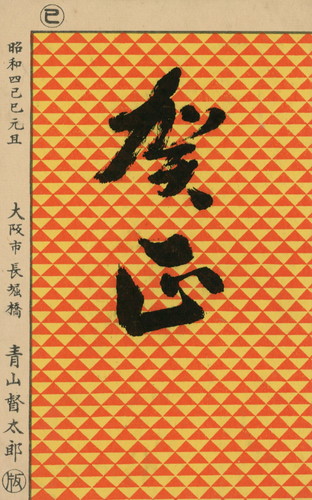 賀正
昭和四己巳元旦
大阪市長堀橋
青山督太郎
版